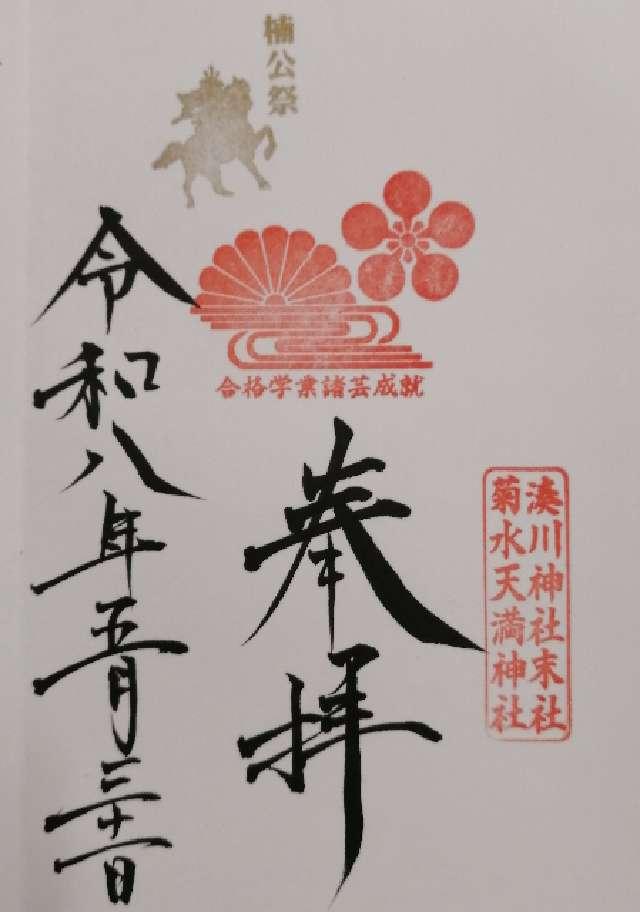 楠公祭
合格学業諸芸成就
湊川神社末社
菊水天満神社
奉拝
令和八年五月三十一日